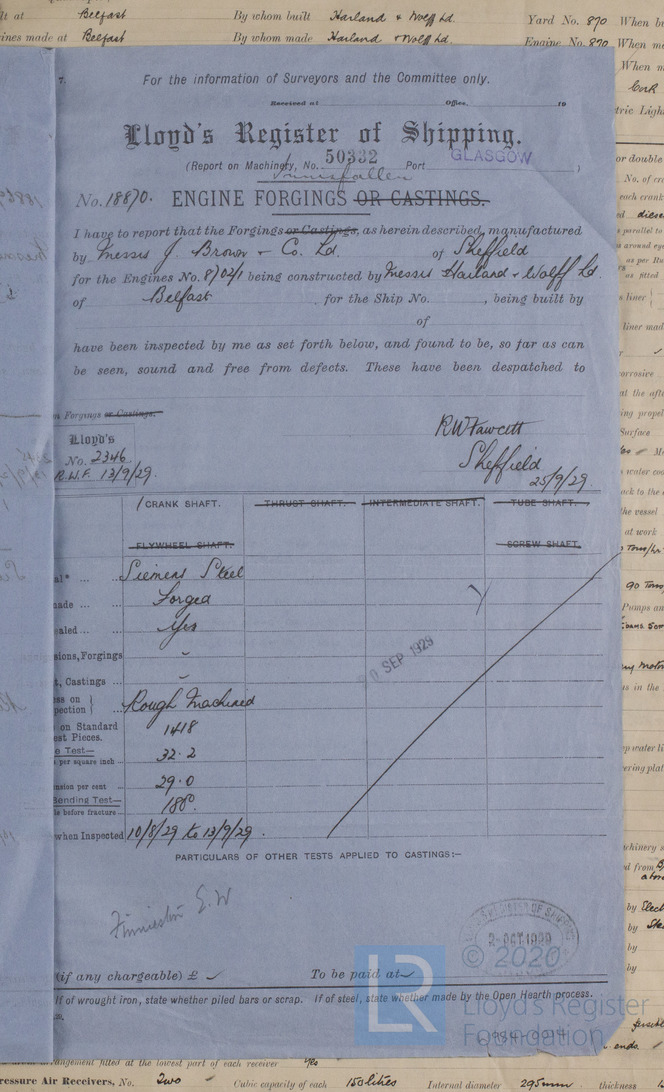 lt at Belfast By whom built Harland & Wolff Ld. Yard No. 870 When bu
ines made at Belfast By whom made Harland & Wolff Ld. Engine No. 870 When m
When m
tric Light
7. For the information of Surveyors and the Committee only.
Received at Office, 19
Lloyd's Register of Shipping.
(Report on Machinery, No. 50332 Port GLASGOW )
Innisfallen
No. 18870. ENGINE FORGINGS OR CASTINGS.
I have to report that the Forgings or Castings, as herein described, manufactured
by Messrs J. Brown & Co. Ld. of Sheffield
for the Engines No. 870 2/1 being constructed by Messrs Harland & Wolff Ld.
of Belfast , for the Ship No. , being built by
of
have been inspected by me as set forth below, and found to be, so far as can
be seen, sound and free from defects. These have been despatched to
n Forgings or Castings.
Lloyd's
No. 2346
R.W.F. 13/9/29.
R W Fawcett
Sheffield
25/9/29.
CRANK SHAFT. THRUST SHAFT. INTERMEDIATE SHAFT. TUBE SHAFT.
FLYWHEEL SHAFT. SCREW SHAFT.
al* ... Siemens Steel
ade ... ... Forged
ealed ... ... Yes
sions, Forgings -
t, Castings ... -
ess on
pection ... Rough Machined
on Standard
est Pieces. 1418
e Test—
per square inch ... 32.2
nsion per cent ... 29.0
Bending Test—
le before fracture... 180°
when Inspected 10/8/29 to 13/9/29.
0 SEP 1929
PARTICULARS OF OTHER TESTS APPLIED TO CASTINGS:—
Finnieston E.W
LLOYD'S REGISTER OF SHIPPING
2-OCT 1929
© 2020
(if any chargeable) £ To be paid at
If of wrought iron, state whether piled bars or scrap. If of steel, state whether made by the Open Hearth process.
LR
Lloyd's Register
Foundation
rangement fitted at the lowest part of each receiver Yes
ressure Air Receivers, No. Two Cubic capacity of each 150 litres Internal diameter 295 mm thickness
or double
No. of cra
each crank
parallel to
around eye
as per Ru
as fitted
liner
liner made
corrosive
at the aft
ing propel
Surface
water coo
ack to the s
the vessel
at work
Tons/hr
90 Tons
Pumps an
s in the
p water li
ering plat
chinery s
d from
by Elect
by Ste
by
by